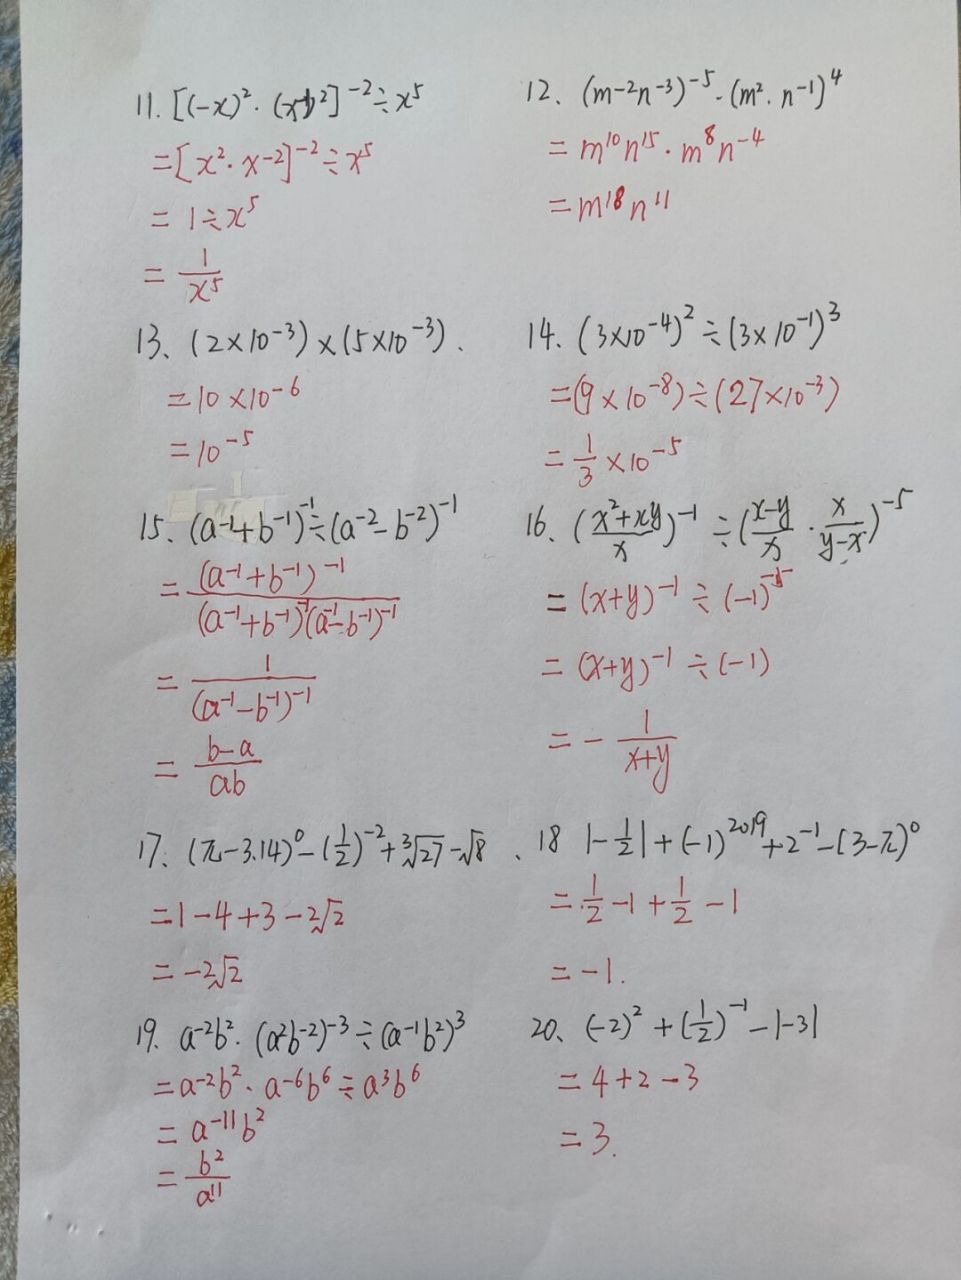 11. [(-x)²·(x⁻¹)²]⁻²÷x⁵
=[x²·x⁻²]⁻²÷x⁵
=1÷x⁵
=1/x⁵
12、(m⁻²n⁻³)⁻⁵·(m²·n⁻¹)⁴
=m¹⁰n¹⁵·m⁸n⁻⁴
=m¹⁸n¹¹
13、(2×10⁻³)×(5×10⁻³).
=10×10⁻⁶
=10⁻⁵
14、(3×10⁻⁴)²÷(3×10⁻¹)³
=(9×10⁻⁸)÷(27×10⁻³)
=1/3×10⁻⁵
15、(a⁻¹+b⁻¹)⁻¹÷(a⁻²-b⁻²)⁻¹
=(a⁻¹+b⁻¹)⁻¹/(a⁻¹+b⁻¹)⁻¹(a⁻¹-b⁻¹)⁻¹
=1/(a⁻¹-b⁻¹)⁻¹
=b-a/ab
16、(x²+xy/x)⁻¹÷(x-y/x·x/y-x)⁻⁵
=(x+y)⁻¹÷(-1)⁻⁵
=(x+y)⁻¹÷(-1)
=-1/x+y
17、(π-3.14)⁰-(1/2)⁻²+³√27-√8
=1-4+3-2√2
=-2√2
、18 |-1/2|+(-1)²⁰¹⁹+2⁻¹-(3-π)⁰
=1/2-1+1/2-1
=-1.
19. a⁻²b²·(a²b⁻²)⁻³÷(a⁻¹b²)³
=a⁻²b²·a⁻⁶b⁶÷a³b⁶
=a⁻¹¹b²
=b²/a¹¹
20、(-2)²+(1/2)⁻¹-|-3|
=4+2-3
=3.